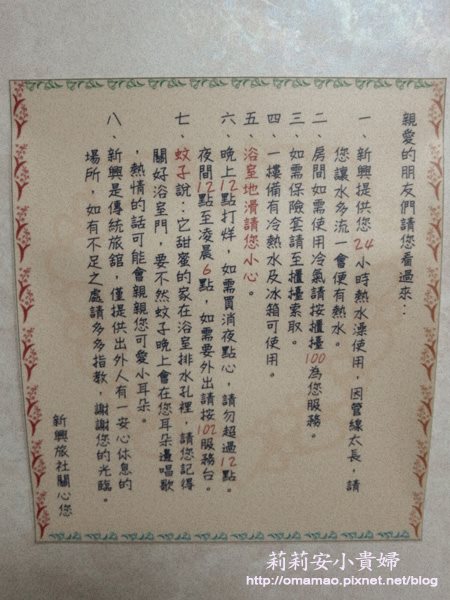 親愛的朋友們請您看過來：
一、新興提供您24小時熱水澡使用，因管線太長，請
您讓水多流一會便有熱水。
二、房間如需使用冷氣請按櫃檯100為您服務。
三、如需保險套請至櫃檯索取。
四、一樓備有冷熱水及冰箱可使用。
五、浴室地滑請您小心。
六、晚上12點打烊，如需買消夜點心，請勿超過12點。
夜間12點至凌晨6點，如需要外出請按102服務台。
七、蚊子說：它甜蜜的家在浴室排水孔裡，請您記得
關好浴室門，要不然蚊子晚上會在您耳朵邊唱歌
，熱情的話可能會親親您可愛小耳朵。
八、新興是傳統旅館，僅提供出外人有一安心休息的
場所，如有不足之處請多多指教，謝謝您的光臨。
新興旅社關心您
莉莉安小貴婦
http://omamao.pixnet.net/blog